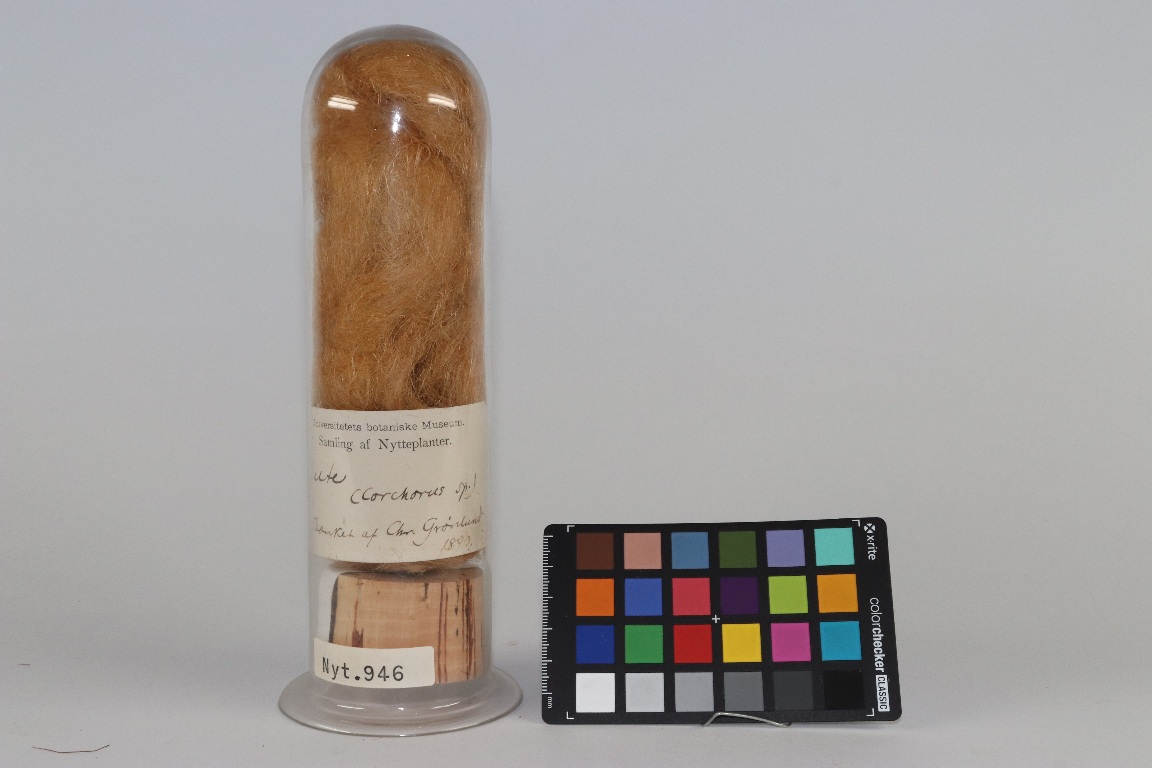 Universitetets botaniske Museum.
Samling af Nytteplanter.
ute
(Corchorus sp.)
af Chr. Grönlund
Nyt.946
x·rite
colorchecker CLASSIC
mm